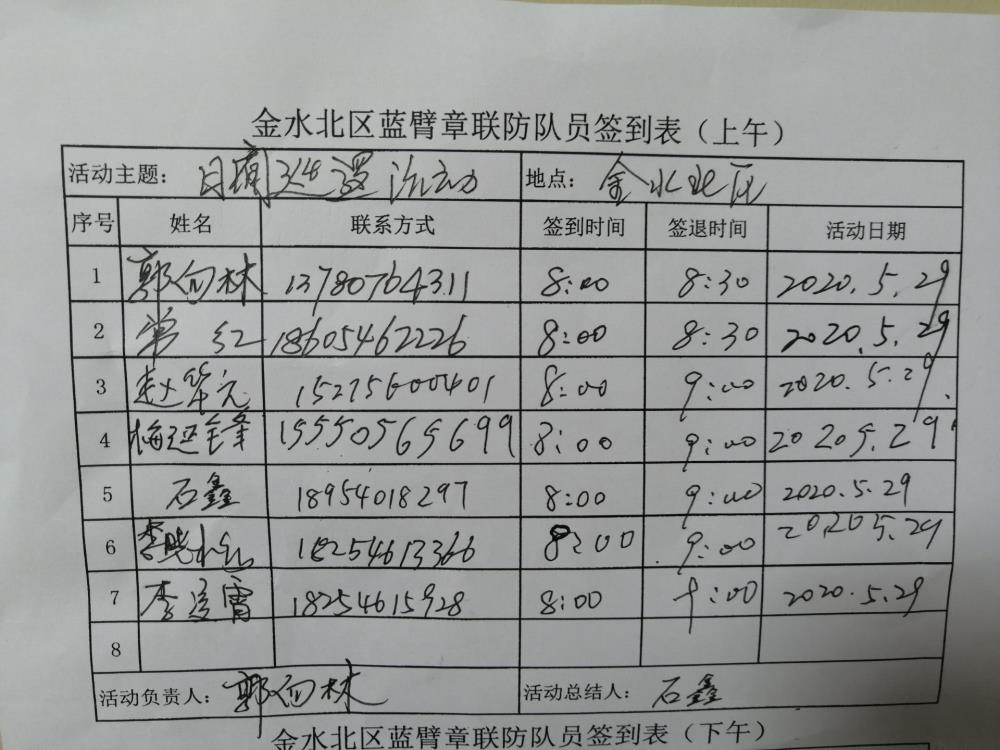 金水北区蓝臂章联防队员签到表（上午）
活动主题： 日间巡逻活动 地点： 金水北区
序号 姓名 联系方式 签到时间 签退时间 活动日期
1 郭向林 13780764311 8:00 8:30 2020.5.29
2 常红 18605462226 8:00 8:30 2020.5.29
3 赵华元 15275600401 8:00 9:00 2020.5.29
4 15550565699 8:00 9:00 2020 5.29
5 石鑫 18954018297 8:00 9:00 2020.5.29
6 李晓 18254613366 8:00 9:00 2020 5.29
7 李 霄 18254615928 8:00 9:00 2020.5.29
8
活动负责人： 郭向林 活动总结人： 石鑫
金水北区蓝臂章联防队员签到表（下午）